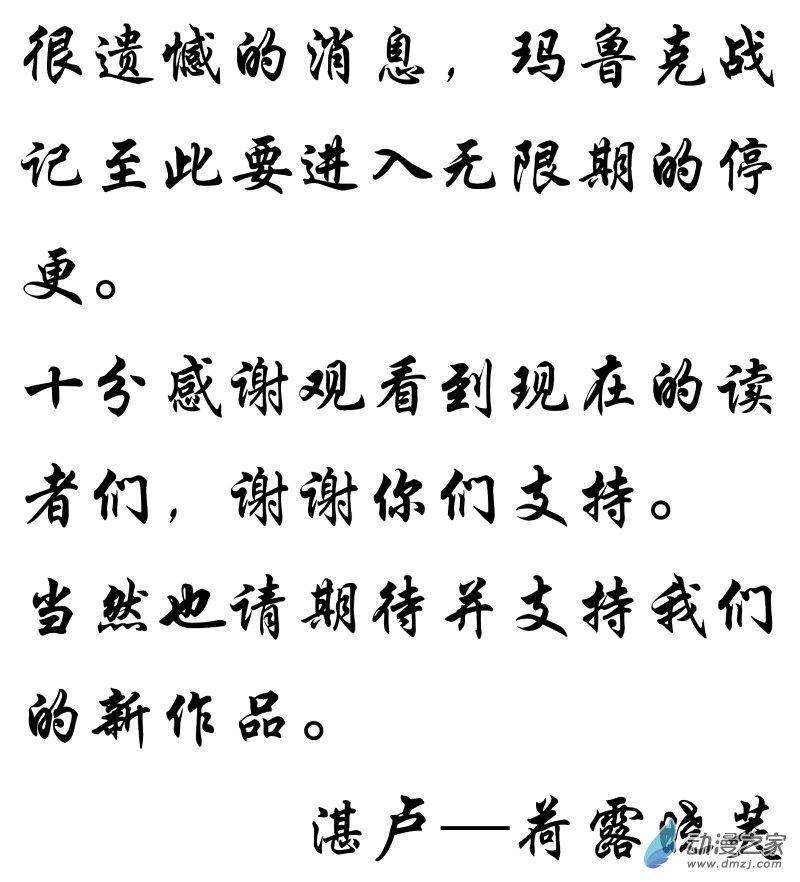 很遗憾的消息，玛鲁克战
记至此要进入无限期的停
更。
十分感谢观看到现在的读
者们，谢谢你们支持。
当然也请期待并支持我们
的新作品。
湛卢—荷露
动漫之家
www.dmzj.com